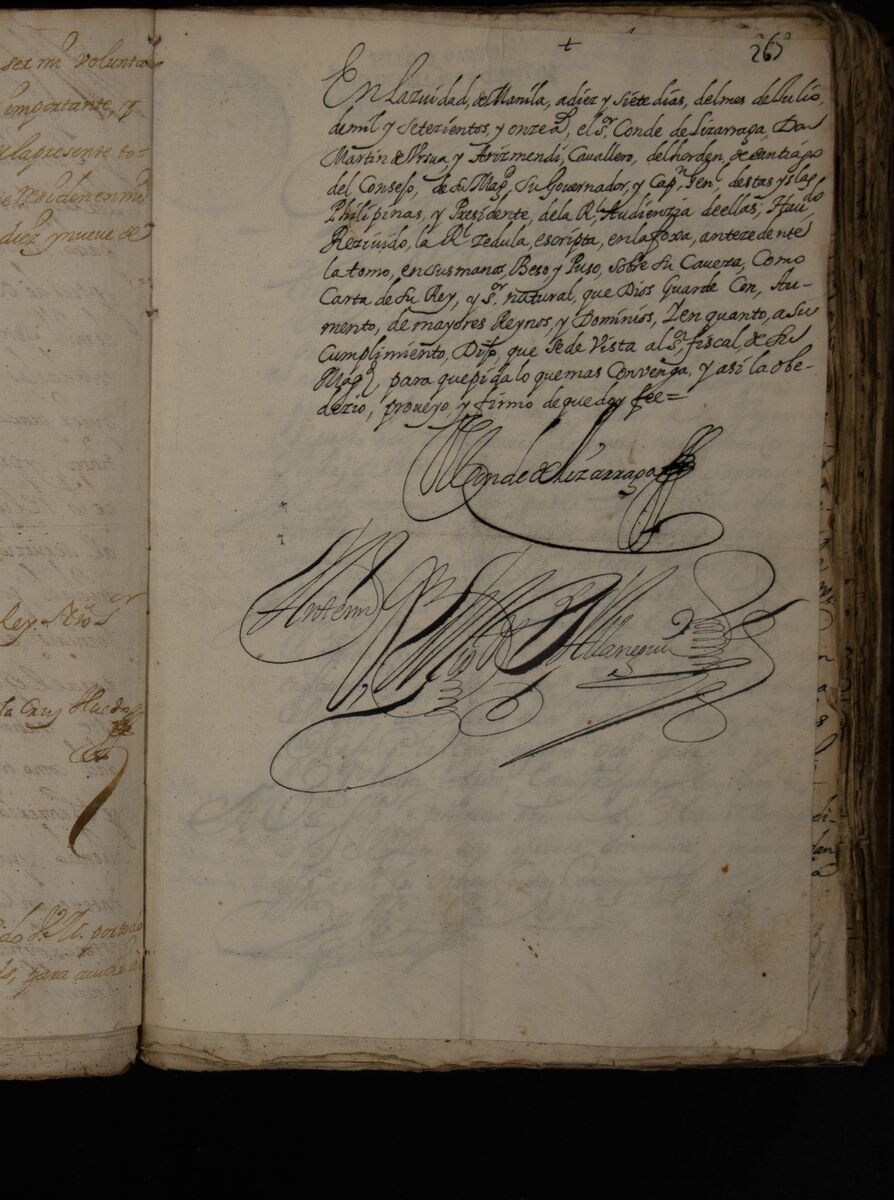 ser mi volunta
importante, y
y la presente to-
diez y nueve de
ley não Sr
+
265
En la ziudad, de Manila, a diez y siete dias, del mes de Julio,
de mil y setezientos, y onze as, el Sr, Conde de Lizarraga, Don
Martin de Vrsua, y Arizmendi, Cavallero, del horden, de Santiago
del Consejo, de Su Magd, Su Governador, y Capn Genl, destas yslas
Philipinas, y Presidente, de la Rl Audienzia de ellas, Haudo
Rezivido, la Rl zedula, escripta, en la foxa, antezedente
la tomo, en sus manos, Beso y Puso, sobre Su Caveza, Como
Carta de Su Rey, y Sr natural, que Dios Guarde Con, Au-
mento, de mayores Reynos, y Dominios, Y en quanto, a Su
Cumplimiento, Dijo, que Se de Vista al Sr fiscal, de Su
Magd, para que pida lo que mas Convenga, y asi la obe-
dezio, proveyo, y firmo de que doy fee=
El Conde de Lizarraga
Antemi